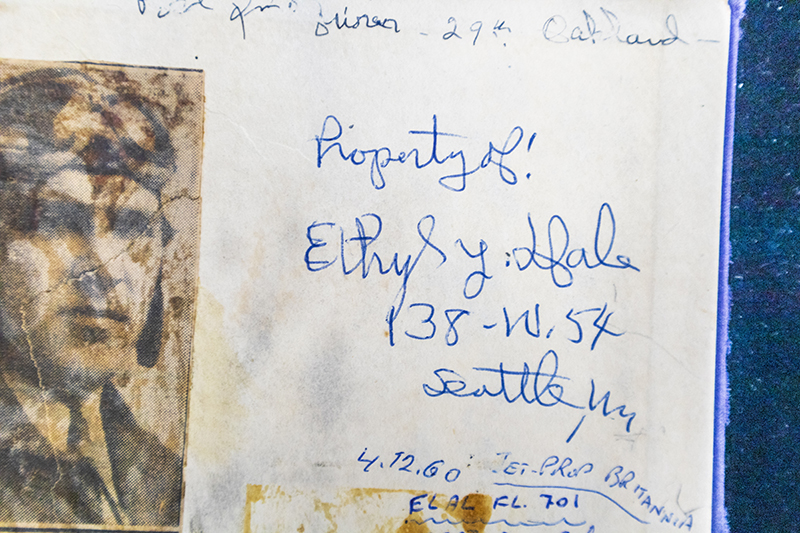 29th Oakland -
Property of!
Ethyl Y. Hale
138 - W. 54
Seattle, Wn
4.12.60 JET-PROP BRITANNIA
EL AL FL. 701